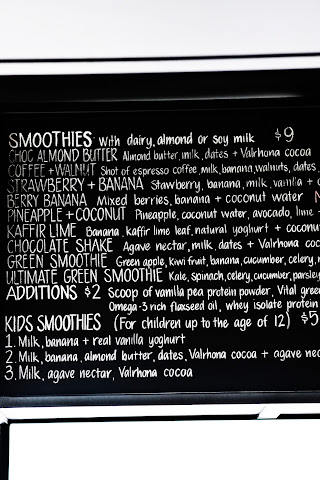 SMOOTHIES with dairy, almond or soy milk $9
CHOC ALMOND BUTTER Almond butter, milk, dates + Valrhona cocoa
COFFEE + WALNUT Shot of espresso coffee, milk, banana, walnuts, dates,
STRAWBERRY + BANANA Stawberry, banana, milk, vanilla +
BERRY BANANA Mixed berries, banana + coconut water
PINEAPPLE + COCONUT Pineapple, coconut water, avocado, lime
KAFFIR LIME Banana, kaffir lime leaf, natural yoghurt + coconut
CHOCOLATE SHAKE Agave nectar, milk, dates + Valrhona coc
GREEN SMOOTHIE Green apple, kiwi fruit, banana, cucumber, celery,
ULTIMATE GREEN SMOOTHIE Kale, spinach, celery, cucumber, parsley
ADDITIONS $2 Scoop of vanilla pea protein powder, Vital green
Omega-3 rich flaxseed oil, whey isolate protein
KIDS SMOOTHIES (For children up to the age of 12) $5
1. Milk, banana + real vanilla yoghurt
2. Milk, banana, almond butter, dates, Valrhona cocoa + agave nec
3. Milk, agave nectar, Valrhona cocoa